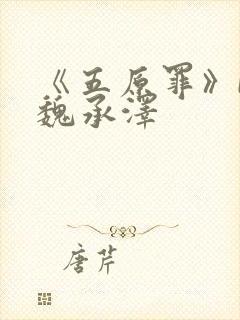 《五原罪》
魏承泽
唐芹